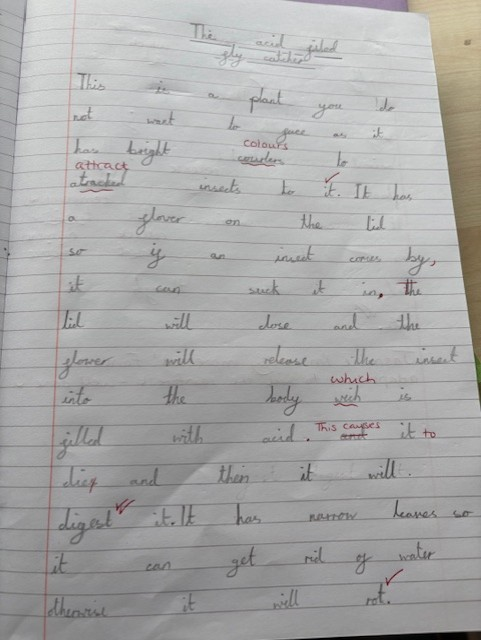 The acid filled
fly catcher
This is a plant you do
not want to face as it
colours
has bright coulers to
attract
atracked insects to it. It has
a flower on the lid
so if an insect comes by,
it can suck it in, the
lid will close and the
flower will release the insect
which
into the body wich is
This causes
filled with acid. and it to
dies and then it will.
digest it. It has narrow leaves so
it can get rid of water
otherwise it will rot.